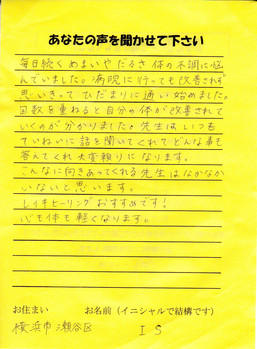 あなたの声を聞かせて下さい
毎日続くめまいやだるさ体の不調に悩
んでいました。病院に行っても改善されず
思いきってひだまりに通い始めました。
回数を重ねると自分の体が改善されて
いくのが分かりました。先生はいつも
ていねいに話を聞いてくれてどんな事も
答えてくれ大変頼りになります。
こんなに向きあってくれる先生はなかなか
いないと思います。
レイキヒーリングおすすめです!
心も体も軽くなります。
お住まい　お名前(イニシャルで結構です)
横浜市瀬谷区　I S